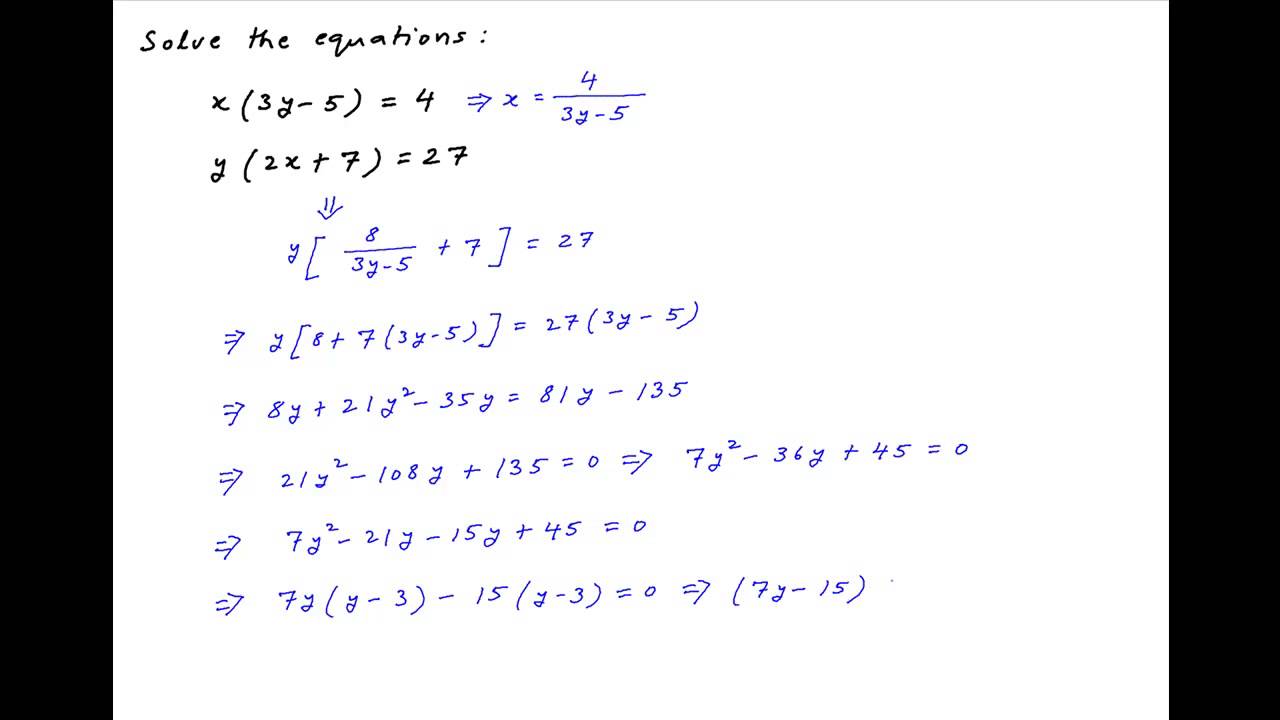 Solve the equations:
x(3y-5) = 4 ⇒ x = 4/(3y-5)
y(2x+7) = 27
⇓
y[8/(3y-5) + 7] = 27
⇒ y[8+7(3y-5)] = 27(3y-5)
⇒ 8y + 21y² - 35y = 81y - 135
⇒ 21y² - 108y + 135 = 0 ⇒ 7y² - 36y + 45 = 0
⇒ 7y² - 21y - 15y + 45 = 0
⇒ 7y(y-3) - 15(y-3) = 0 ⇒ (7y-15)